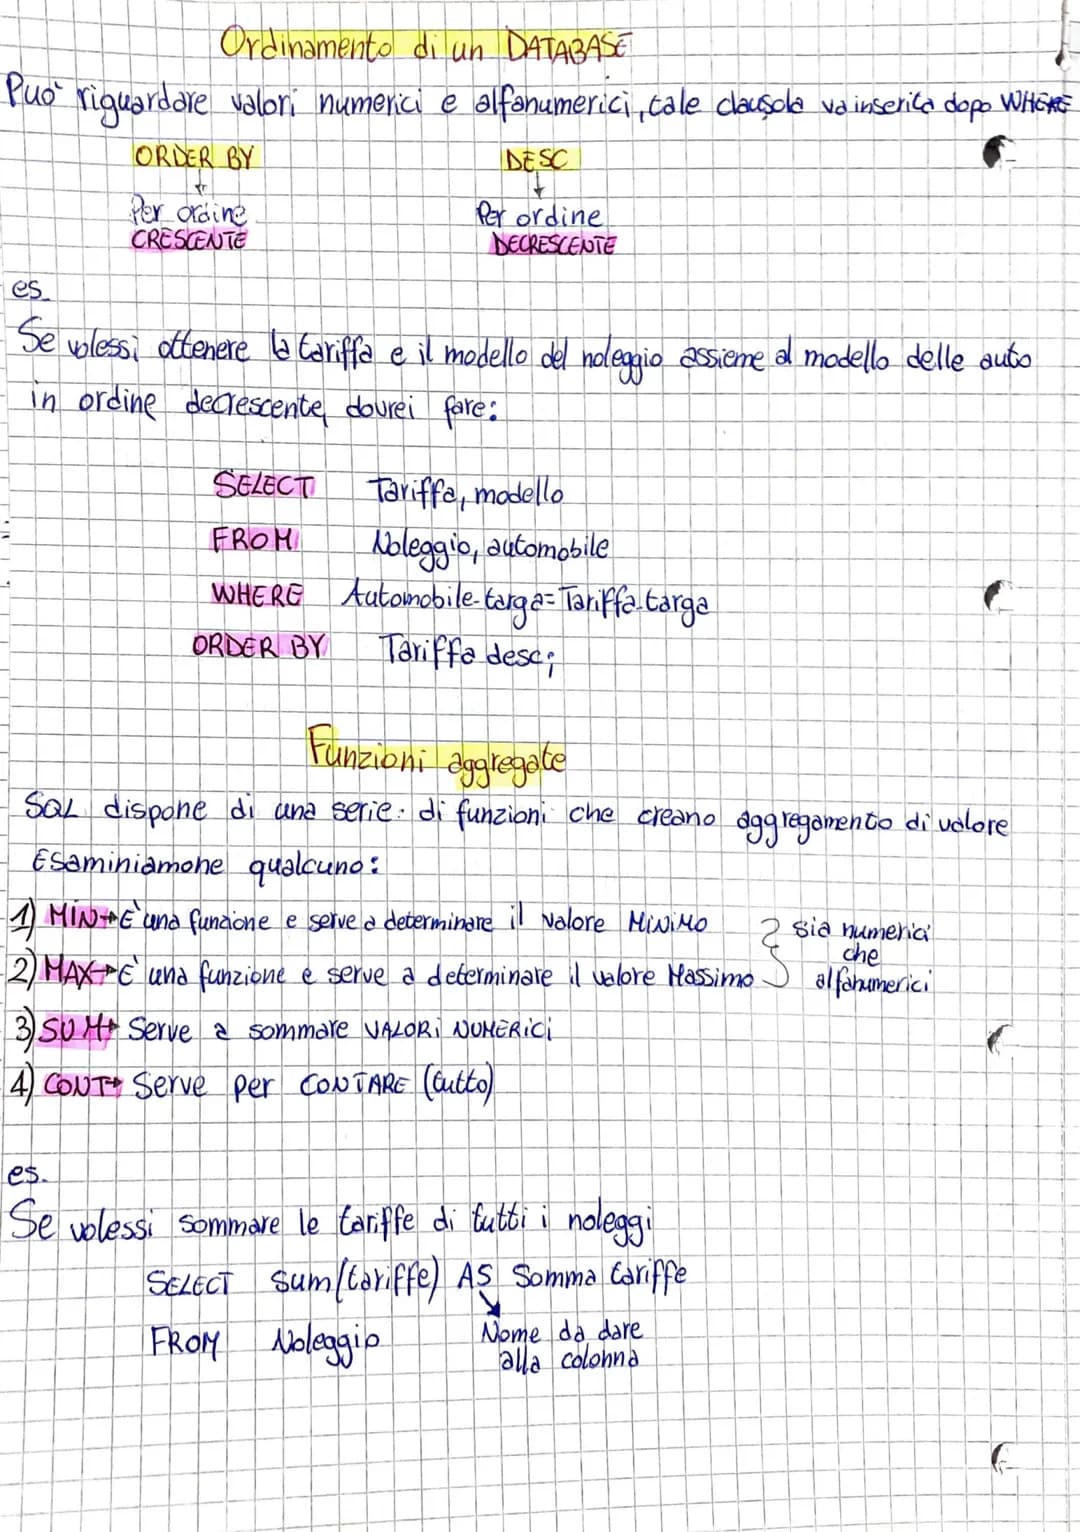 Ordinamento di un DATABASE
Può riguardare valori numerici e alfanumerici, tale clausola va inserita dopo WHERE
ORDER BY DESC
Per ordine Per ordine
CRESCENTE DECRESCENTE
es
Se volessi ottenere la tariffa e il modello del noleggio assieme al modello delle auto
in ordine decrescente, dovrei fare:
SELECT Tariffa, modello
FROM Noleggio, automobile
WHERE Automobile.targa=Tariffa.targa
ORDER BY Tariffa desc;
Funzioni aggregate
SQL dispone di una serie di funzioni che creano aggregamento di valore
Esaminiamone qualcuno:
1) MIN→È una funzione e serve a determinare il valore MINIMO
2) MAX→È una funzione e serve a determinare il valore Massimo
sia numerici
che
alfanumerici
3) SUM→ Serve a sommare VALORI NUMERICI
4) CONT→ Serve per CONTARE (tutto)
es.
Se volessi sommare le tariffe di tutti i noleggi
SELECT sum(tariffe) AS Somma tariffe
FROM Noleggio
Nome da dare
alla colonna